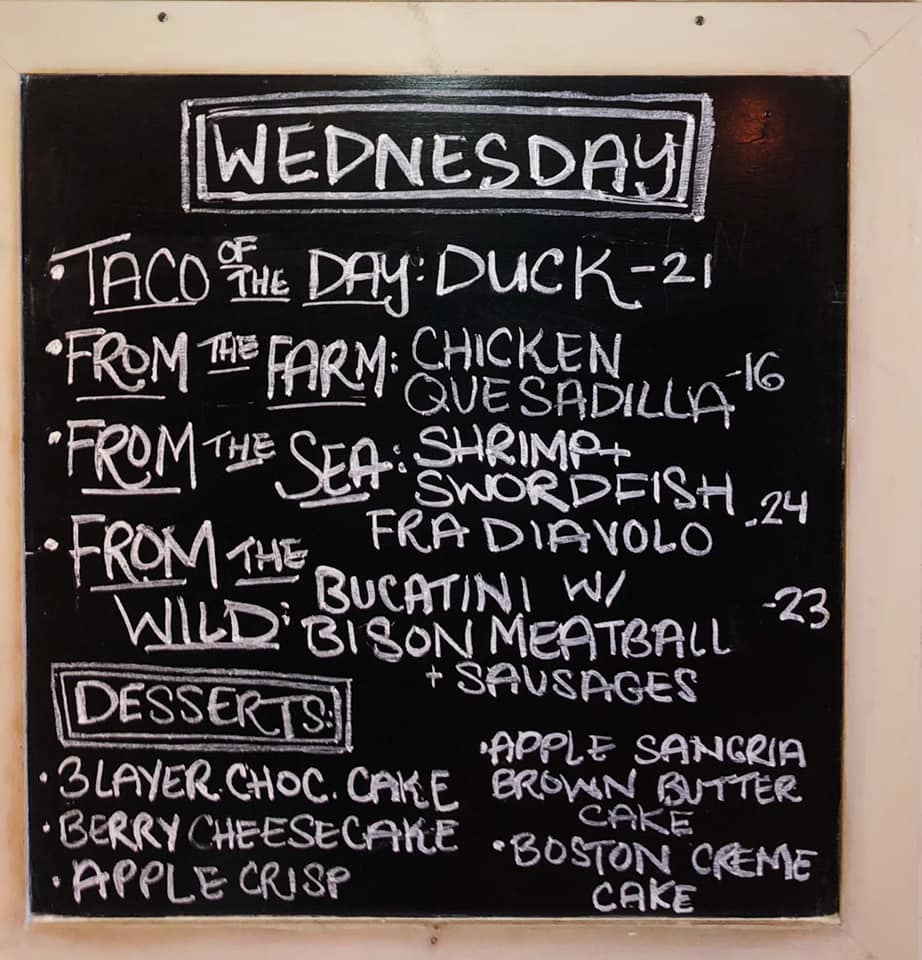 WEDNESDAY
• TACO OF THE DAY: DUCK - 21
• FROM THE FARM: CHICKEN
QUESADILLA - 16
• FROM THE SEA: SHRIMP +
SWORDFISH
FRA DIAVOLO - 24
• FROM THE
WILD: BUCATINI W/
BISON MEATBALL - 23
+ SAUSAGES
DESSERTS:
• 3 LAYER CHOC. CAKE
• BERRY CHEESECAKE
• APPLE CRISP
• APPLE SANGRIA
BROWN BUTTER
CAKE
• BOSTON CREME
CAKE